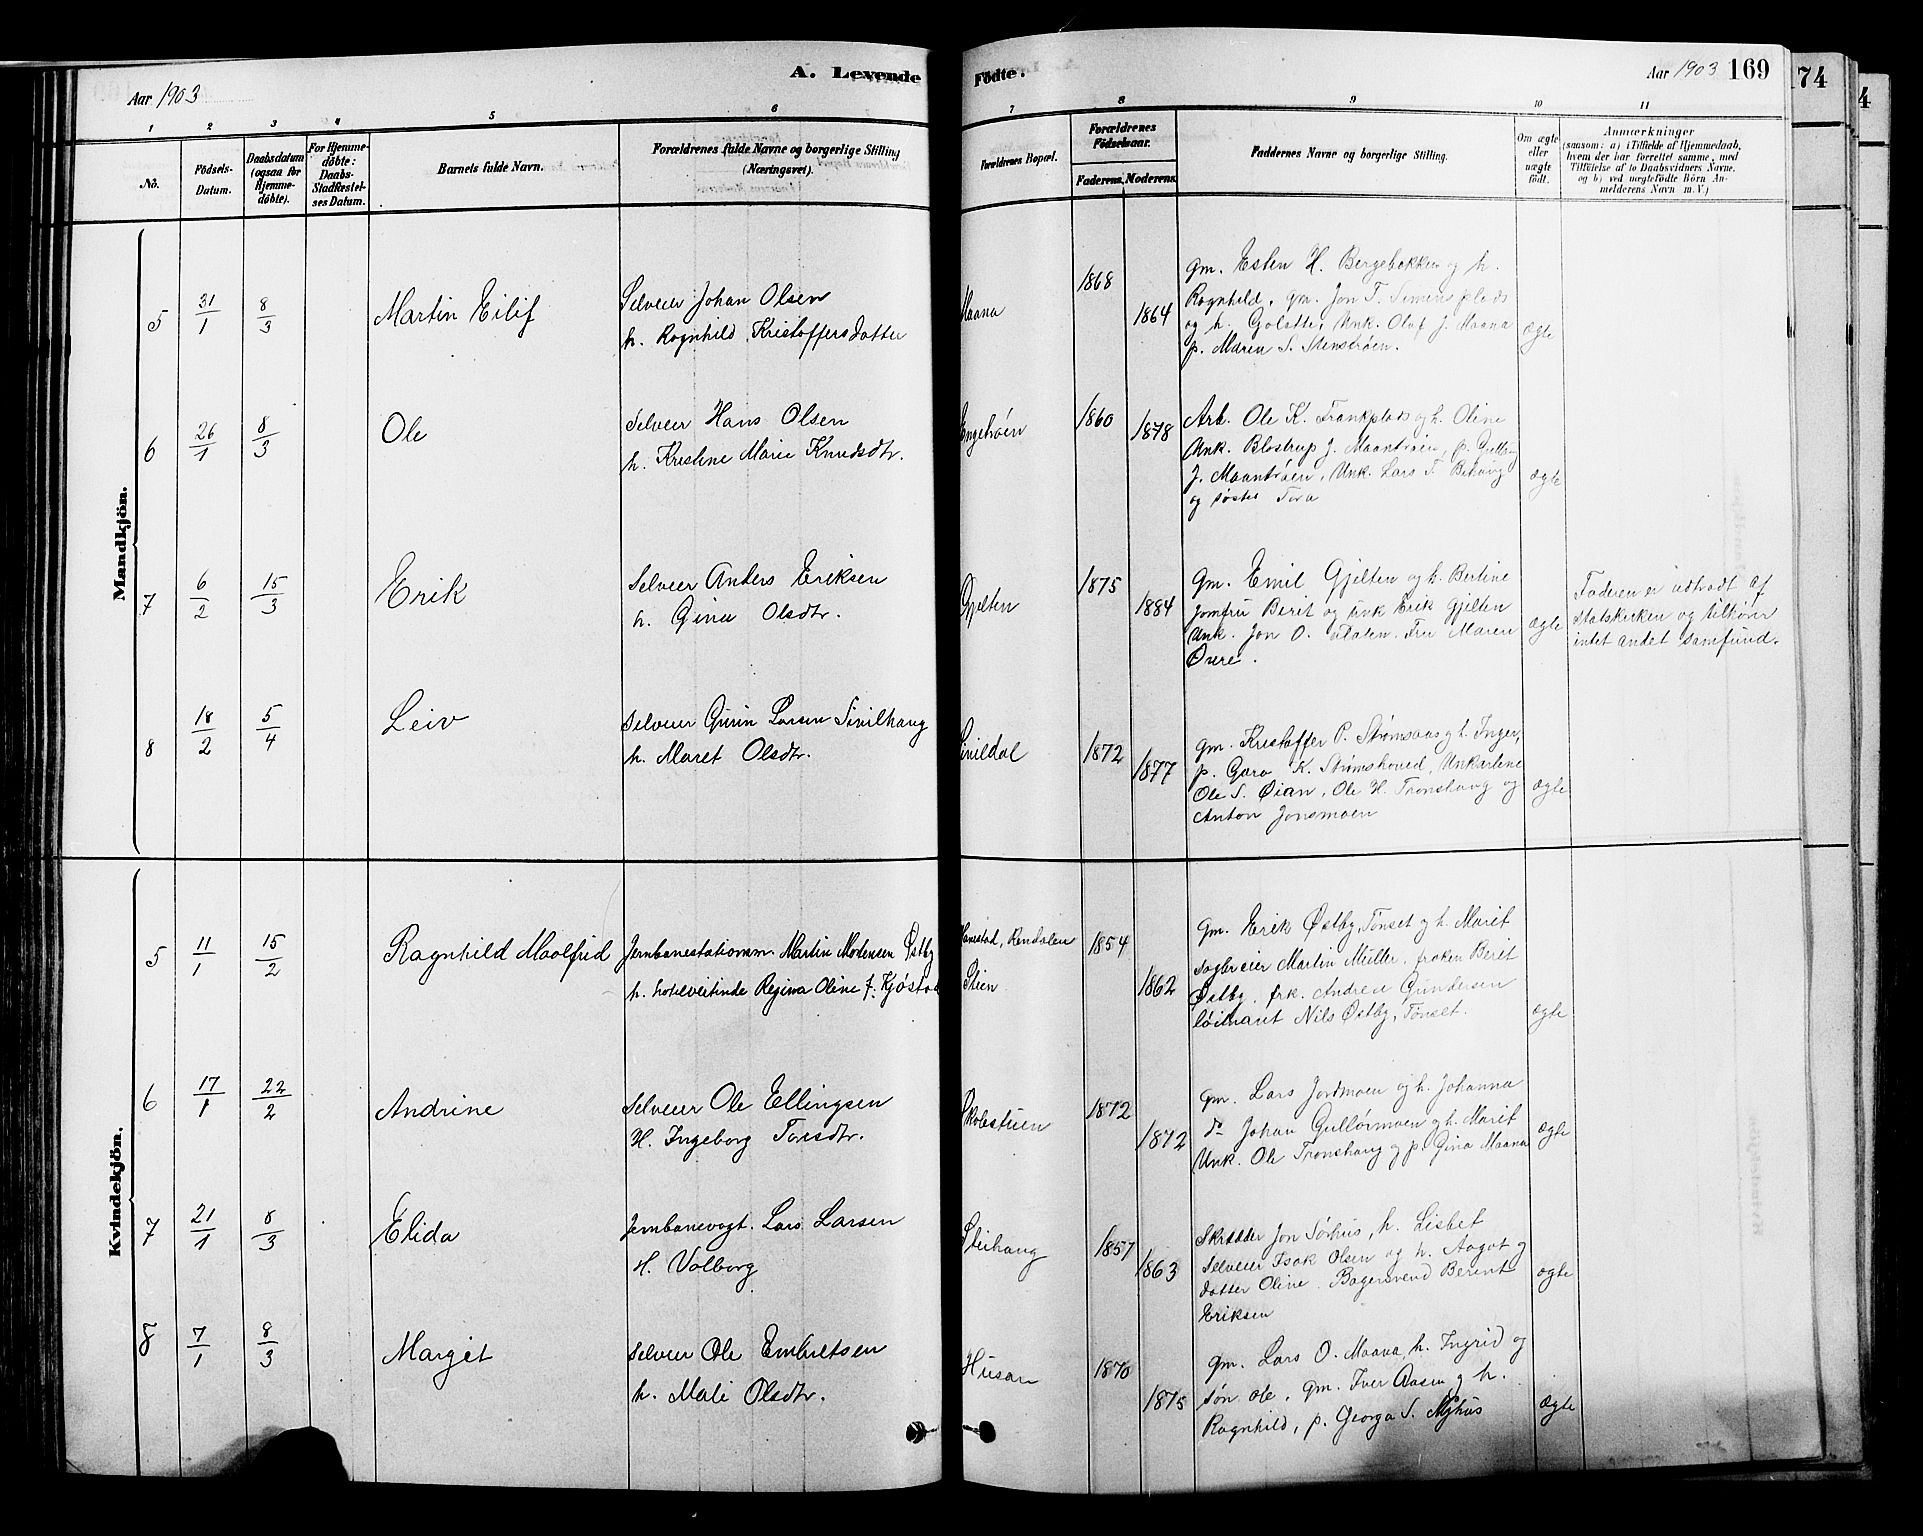 A. Levende
Födte.
Aar 1903
Aar 1903 169
74
4
1 2 3 4 5 6 7 8 9 10 11
No.
Födsels-
Datum.
Daabsdatum
(ogsaa for
Hjemme-
döbte).
For Hjemme-
döbte:
Daabs-
Stadfæstel-
ses Datum.
Barnets fulde Navn.
Forældrenes fulde Navne og borgerlige Stilling
(Næringsvei).
Forældrenes Bopæl.
Forældrenes
Födselsaar.
Faderens. Moderens.
Faddernes Navne og borgerlige Stilling.
Om ægte
eller
uægte
födt.
Anmærkninger
(saasom: a) i Tilfælde af Hjemmedaab,
hvem der har forrettet samme, med
Tilföielse af to Daabsvidners Navne.
og b) ved uægtefödte Börn An-
melderens Navn m. V.)
Mandkjön.
5 31/1 8/3 Martin Eilif
Selveier Johan Olsen
h. Ragnhild Kristoffersdatter
Maana
1868
1864
gm. Esten H. Bergebakken og h.
Ragnhild, gm. Jon T. Simensplads
og h. Golette, Unk. Oluf J. Maana
p. Maren S. Stenstrøen.
ægte
6 26/1 8/3 Ole
Selveier Hans Olsen
h. Kristine Marie Knudsdtr.
Engetrøen
1860
1878
Arb. Ole K. Trankplads og h. Oline
Unk. Blostrup J. Maantrøen, p.
J. Maantrøen, Unk. Lars T. Behaug
og søster Tora
ægte
7 6/2 15/3 Erik
Selveier Anders Eriksen
h. Gina Olsdtr.
Gjelten
1875
1884
Gm. Emil Gjelten og h. Bertine
Jomfru Berit og unk Erik Gjelten
Unk. Jon O. Flaten. Fru Maren
Øvre.
ægte
Faderen er udtraadt af
Statskirken og tilhører
intet andet samfund.
8 18/2 5/4 Leiv
Selveier Larsen Sivilhaug
h. Maret Olsdtr.
Sivildal
1872
1877
gm. Kristoffer P. Strømsaas og h. Inger,
p. Guro K. Strømshoved, Unkarlene
Ole S. Øian, Ole H. Tronshaug og
Anton Jonsmoen
ægte
Kvindekjön.
5 11/1 15/2 Ragnhild Maalfrid
Jernbanestationsm. Martin Mortensen Østby
h. hotelvertinde Regina Oline f. Kjøstad
Hanestad, Rendalen
Stien
1854
1862
gm. Erik Østby, Tønset og h. Marit
Sagbrveier Martin Müller, frøken Berit
Østby, frk. Andrea Gundersen
løitnant Nils Østby, Tønset.
ægte
6 17/1 22/2 Andrine
Selveier Ole Ellingsen
H. Ingeborg Toresdtr.
Skolestuen
1872
1872
gm. Lars Jordmoen og h. Johanna
do Johan Gullormoen og h. Marit
Unk. Ole Tronshaug og p. Gina Maana
ægte
7 21/1 8/3 Elida
Jernbanevogt. Lars Larsen
H. Valborg
Steihaug
1857
1863
Skrædder Jon Sørhus, h. Lisbet
Selveier Isak Olsen og h. Aagot og
datter Oline. Bagersvend Berent
Eriksen
ægte
8 7/1 8/3 Margit
Selveier Ole Embretsen
h. Mali Olsdtr.
Husan
1870
1875
gm. Lars O. Maana, h. Ingrid og
søn Ole, gm. Iver Aasen og h.
Ragnhild, p. Georga S. Nyhus
ægte